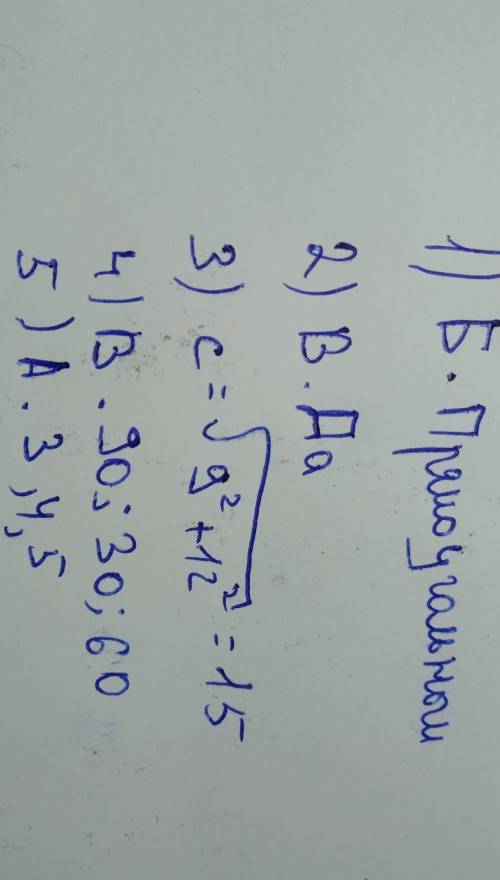 1) Б. Прямоугальном
2) В. Да
3) c = √9² + 12² = 15
4) В. 90; 30; 60
5) А. 3, 4, 5